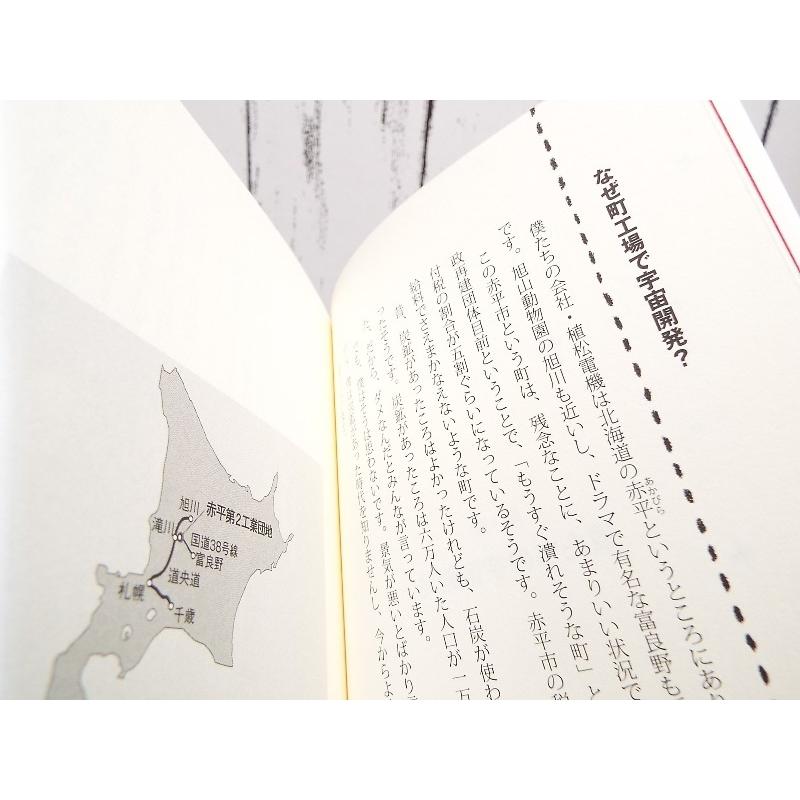 なぜ町工場で宇宙開発？
僕たちの会社・植松電機は北海道の赤平というところにあり
あかびら
です。旭山動物園の旭川も近いし、ドラマで有名な富良野も
この赤平市という町は、残念なことに、あまりいい状況で
政再建団体目前ということで、「もうすぐ潰れそうな町」と
付税の割合が五割ぐらいになっているそうです。赤平市の
給料でさえまかなえないような町です。
昔、炭鉱があったころはよかったけれども、石炭が使わ
ったそうです。炭鉱があったころは六万人いた人口が一万
だから、ダメなんだとみんなが言っています。
でも、僕はそうは思わないです。景気が悪いとばかり
旭川
赤平第2工業団地
滝川
国道38号線
富良野
道央道
札幌
千歳